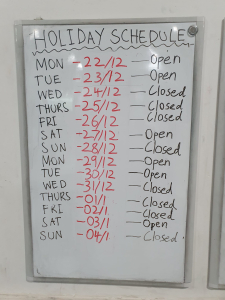 HOLIDAY SCHEDULE
MON -22/12 — Open
TUE -23/12 — Open
WED -24/12 — Closed
THURS -25/12 — Closed
FRI -26/12 — Closed
SAT -27/12 — Open
SUN -28/12 — Closed
MON -29/12 — Open
TUE -30/12 — Open
WED -31/12 — Closed
THURS -01/1 — Closed
FRI -02/1 — Closed
SAT -03/1 — Open
SUN -04/1 — Closed.